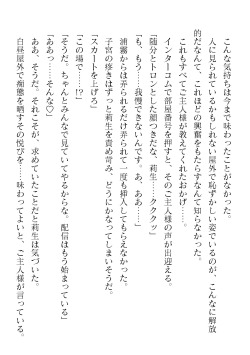 こんな気持ちは今まで味わったことがなかった。
人に見られているかもしれない屋外で恥ずかしい姿でいるのが、こんなに解放
的だなんて、これほどの興奮をもたらすなんて知らなかった。
これもすべてご主人様が教えてくれたおかげ……。
インターコムで部屋番号を押すと、そのご主人様の声が出迎える。
「随分とトロンとした顔つきだな、莉生……ククッ」
「も、もう……我慢できないんです、あ、ああ……」
浦霧からは弄られるだけ弄られて一度も挿入してもらえなかった。
子宮の疼きはずっと莉生を責め苛み、どうにかなってしまいそうだ。
「スカートを上げろ」
「この場で……!?」
「そうだ。ちゃんとみんなで見ていてやるからな。配信はもう始まっている」
「ああっ……そんな♡」
ああ、そうだ。それこそが、求めていたことだと莉生は気づいた。
白昼屋外で痴態を晒すその悦びを……味わってよいと、ご主人様が言っている。